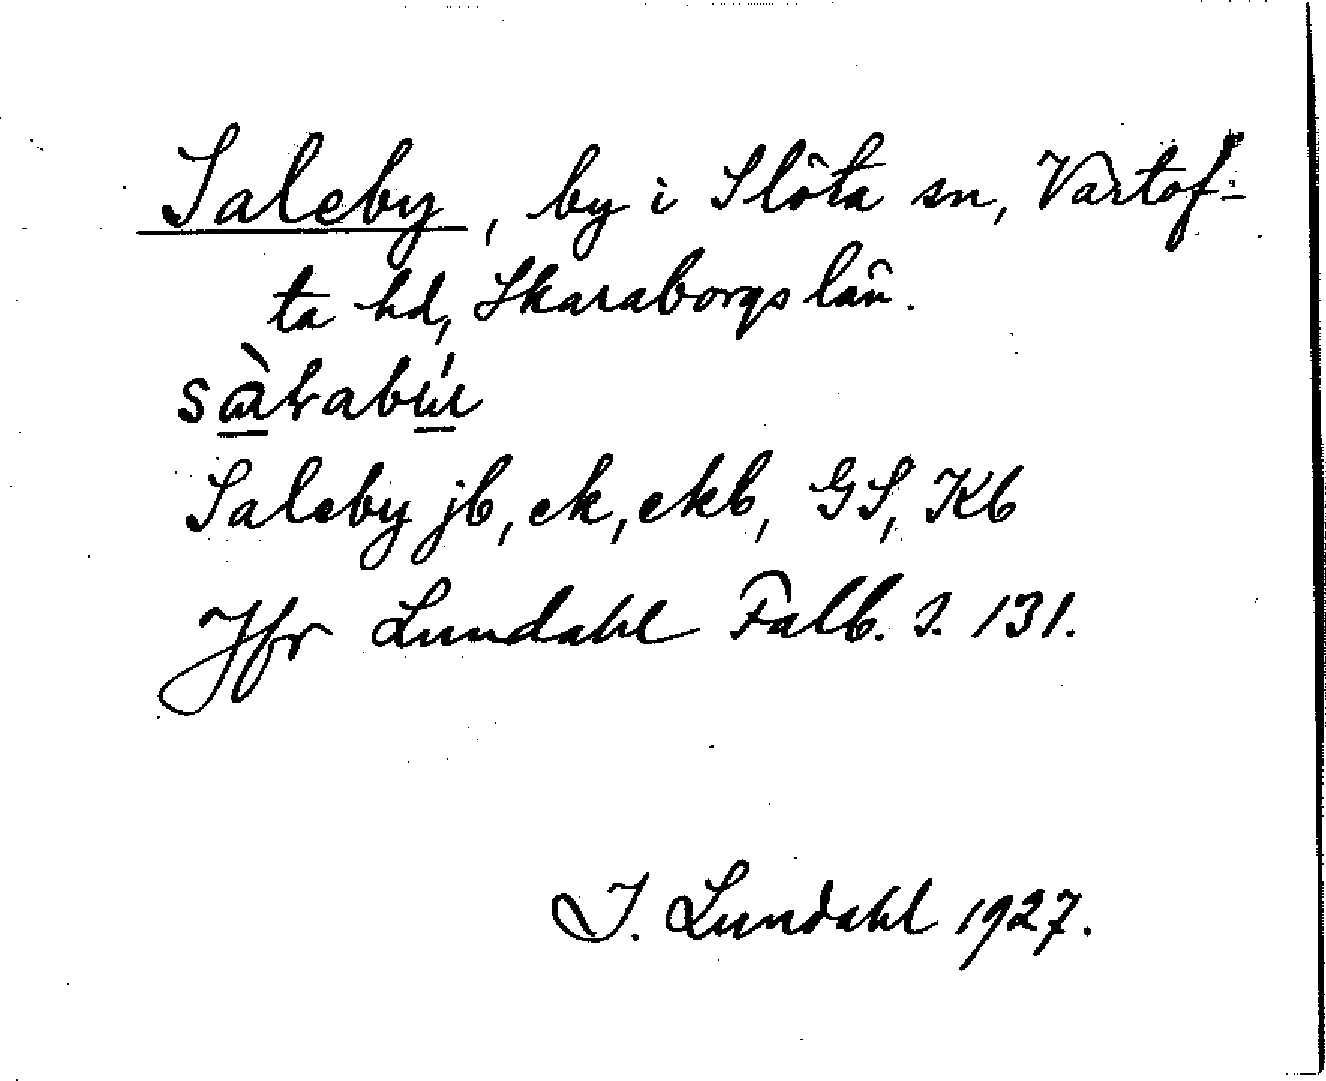 Saleby, by i Slöta sn, Vartof-
ta hd, Skaraborgs län.
Saleby jb, ek, ekb, GS, Kb
Jfr Lundahl Falb. s. 131.
I. Lundahl 1927.